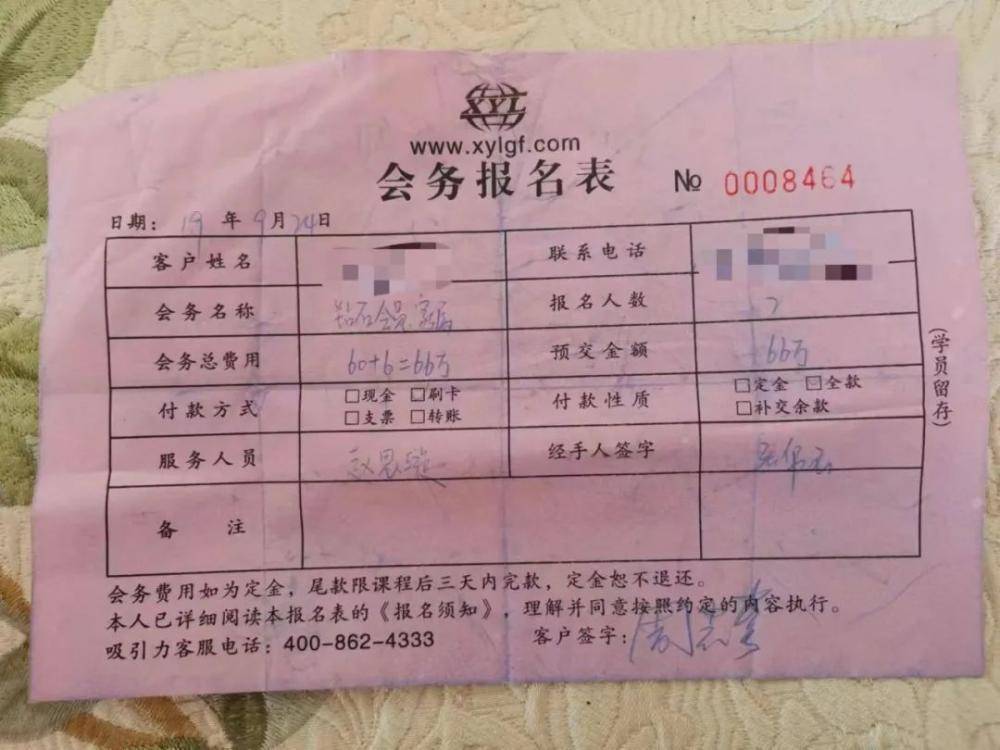 XYL
www.xylgf.com
会务报名表 № 0008464
日期: 19 年 9 月 24 日
客户姓名 联系电话
会务名称 钻石会员 家属 报名人数 7
会务总费用 60+6=66万 预交金额 66万
付款方式 □现金 □刷卡 □支票 □转账 付款性质 □定金 □全款 □补交余款
服务人员 赵恩 经手人签字
备注
(学员留存)
会务费用如为定金,尾款限课程后三天内完款,定金恕不退还。
本人已详细阅读本报名表的《报名须知》,理解并同意按照约定的内容执行。
吸引力客服电话:400-862-4333 客户签字:周志